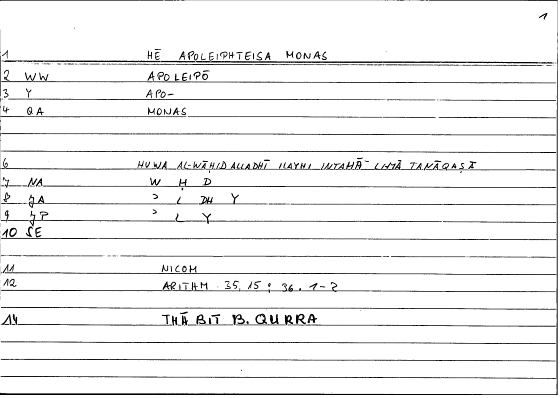 1
1 HĒ APOLEIPHTEISA MONAS
2 WW APOLEIPŌ
3 Y APO-
4 QA MONAS
6 HUWA AL-WĀḤID ALLADHĪ ILAYHI INTAHĀ LIMĀ TANĀQAṢĀ
7 NA W Ḥ D
8 JA ʾ L DH Y
9 JP ʾ L Y
10 SE
11 NICOM
12 ARITHM 35, 15 ; 36. 1-2
14 THĀBIT B. QURRA